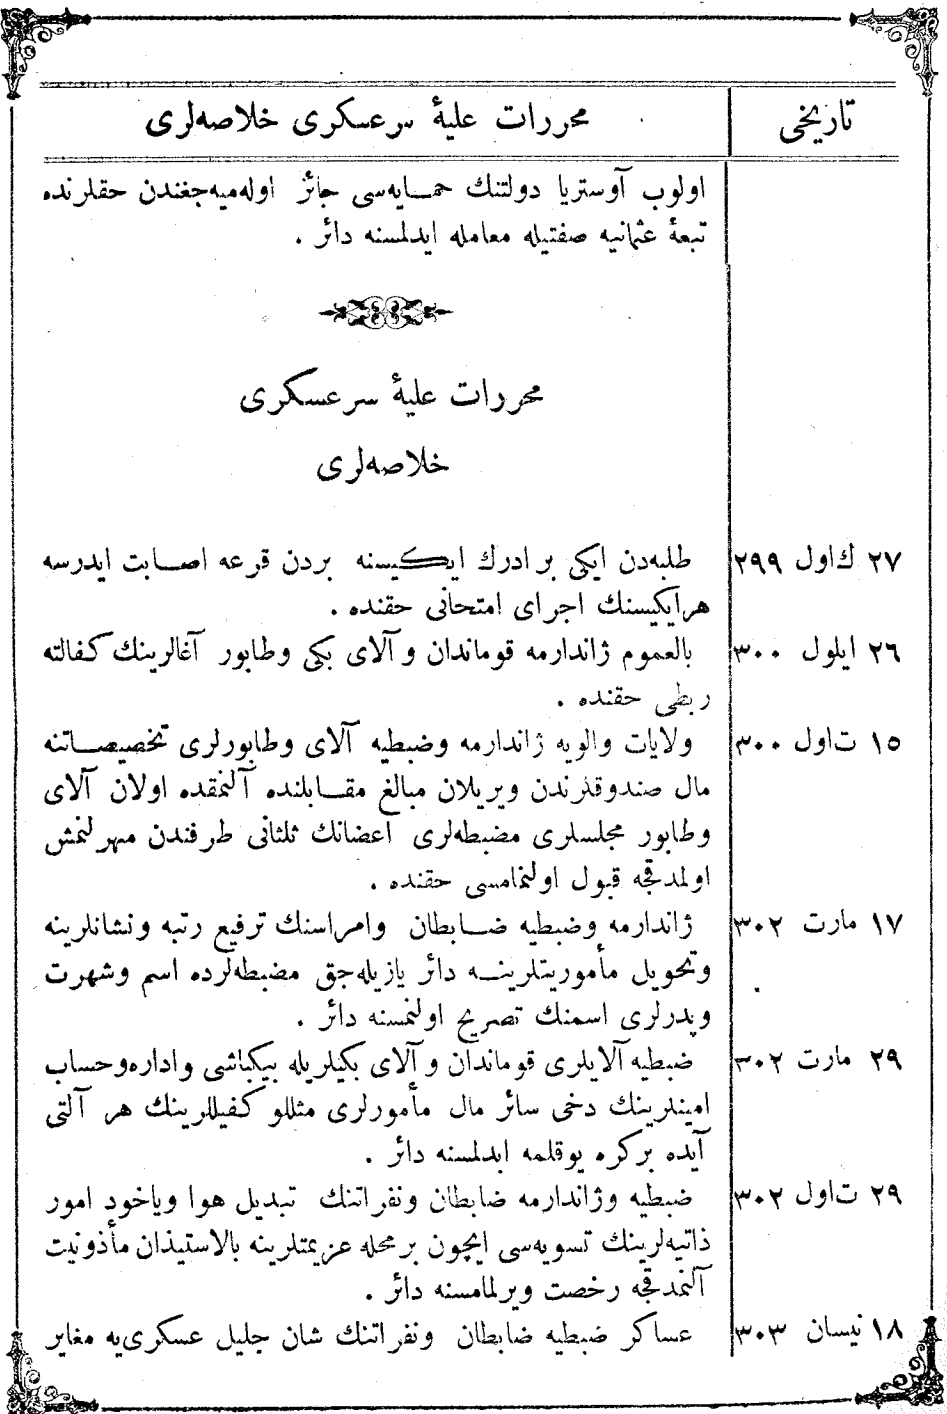 تاریخی	محررات علیهٔ سرعسکری خلاصه‌لری
اولوب آوستریا دولتنك حمایه‌سی جائز اوله‌میه‌جغندن حقلرنده
تبعهٔ عثمانیه صفتیله معامله ایدلمسنه دائر .
محررات علیهٔ سرعسکری
خلاصه‌لری
٢٧ ك‌اول ٢٩٩	طلبه‌دن ایکی برادرك ایکیسنه بردن قرعه اصابت ایدرسه
هرایکیسنك اجرای امتحانی حقنده .
٢٦ ایلول ٣٠٠	بالعموم ژاندارمه قوماندان و آلای بکی وطابور آغالرینك کفالته
ربطی حقنده .
١٥ ت‌اول ٣٠٠	ولایات والویه ژاندارمه وضبطیه آلای وطابورلری تخصیصاتنه
مال صندوقلرندن ویریلان مبالغ مقابلنده آلنمقده اولان آلای
وطابور مجلسلری مضبطه‌لری اعضانك ثلثانی طرفندن مهرلنمش
اولمدقجه قبول اولنمامسی حقنده .
١٧ مارت ٣٠٢	ژاندارمه وضبطیه ضابطان وامراسنك ترفیع رتبه ونشانلرینه
وتحویل مأموریتلرینه دائر یازیله‌جق مضبطه‌لرده اسم وشهرت
وپدرلری اسمنك تصریح اولنمسنه دائر .
٢٩ مارت ٣٠٢	ضبطیه آلایلری قوماندان و آلای بکیلریله بیکباشی واداره‌وحساب
امینلرینك دخی سائر مال مأمورلری مثللو کفیللرینك هر آلتی
آیده برکره یوقلمه ایدلمسنه دائر .
٢٩ ت‌اول ٣٠٢	ضبطیه وژاندارمه ضابطان ونفراتنك تبدیل هوا ویاخود امور
ذاتیه‌لرینك تسویه‌سی ایچون برمحله عزیمتلرینه بالاستیذان مأذونیت
آلنمدقجه رخصت ویرلمامسنه دائر .
١٨ نیسان ٣٠٣	عساکر ضبطیه ضابطان ونفراتنك شان جلیل عسکری‌یه مغایر